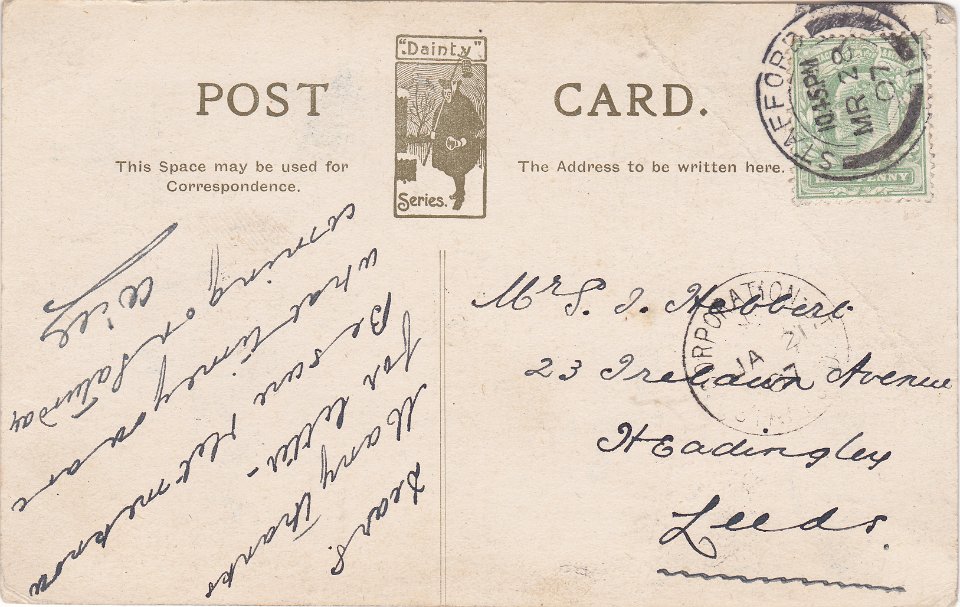 POST CARD.
"Dainty"
Series.
This Space may be used for
Correspondence.
The Address to be written here.
STAFFORD
10.45PM
MR 28
07
NNY
Dear S.
Many thanks
for letter -
Be sure & let me know
what time you are
coming on Saturday
Will
Mrs. I. Hebbert
23 Ireldwn Avenue
Headingley
Leeds.
CORPORATION ST
JA 21
07